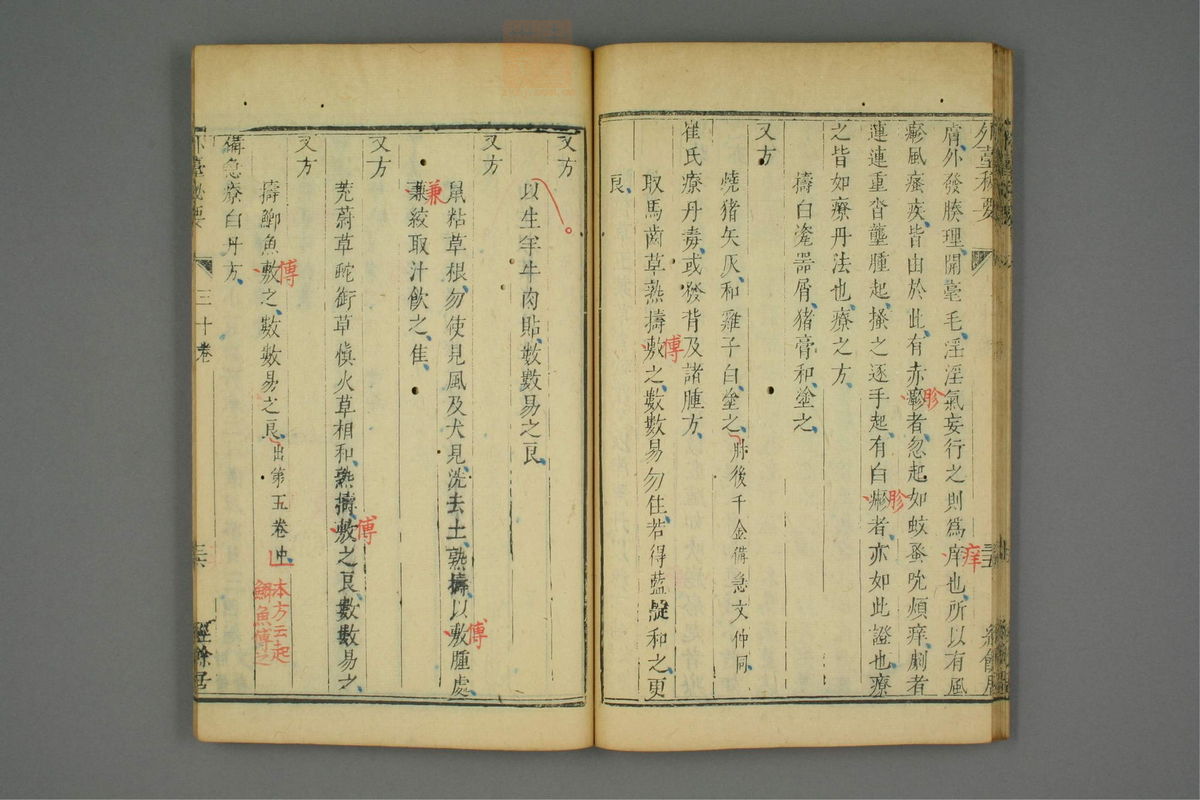 外臺秘要
膚外發腠理開毫毛淫淫氣妄行之則為痒也所以有風
痒
瘮風瘙疾皆由於此有赤瘮者忽起如蚊蚤吮煩痒劇者
胗
連連重沓壟腫起搔之逐手起有白瘮者亦如此證也療
胗
之皆如療丹法也療之方
擣白瓷器屑猪膏和塗之
又方
燒猪矢灰和雞子白塗之肘後千金備急文仲同
崔氏療丹毒或發背及諸腫方
取馬齒草熟擣敷之數數易勿住若得藍靛和之更
傅
良
又方
以生羊牛肉貼數數易之良
又方
鼠粘草根勿使見風及犬見洗去土熟擣以敷腫處
傅
兼絞取汁飲之佳
兼
又方
茺蔚草蛇銜草慎火草相和熟擣敷之良數數易之
傅
又方
擣鯽魚敷之數數易之良出第五卷中
傅
本方云起
鯽魚傅之
備急療白丹方
外臺秘要
三十卷
三六
經餘居